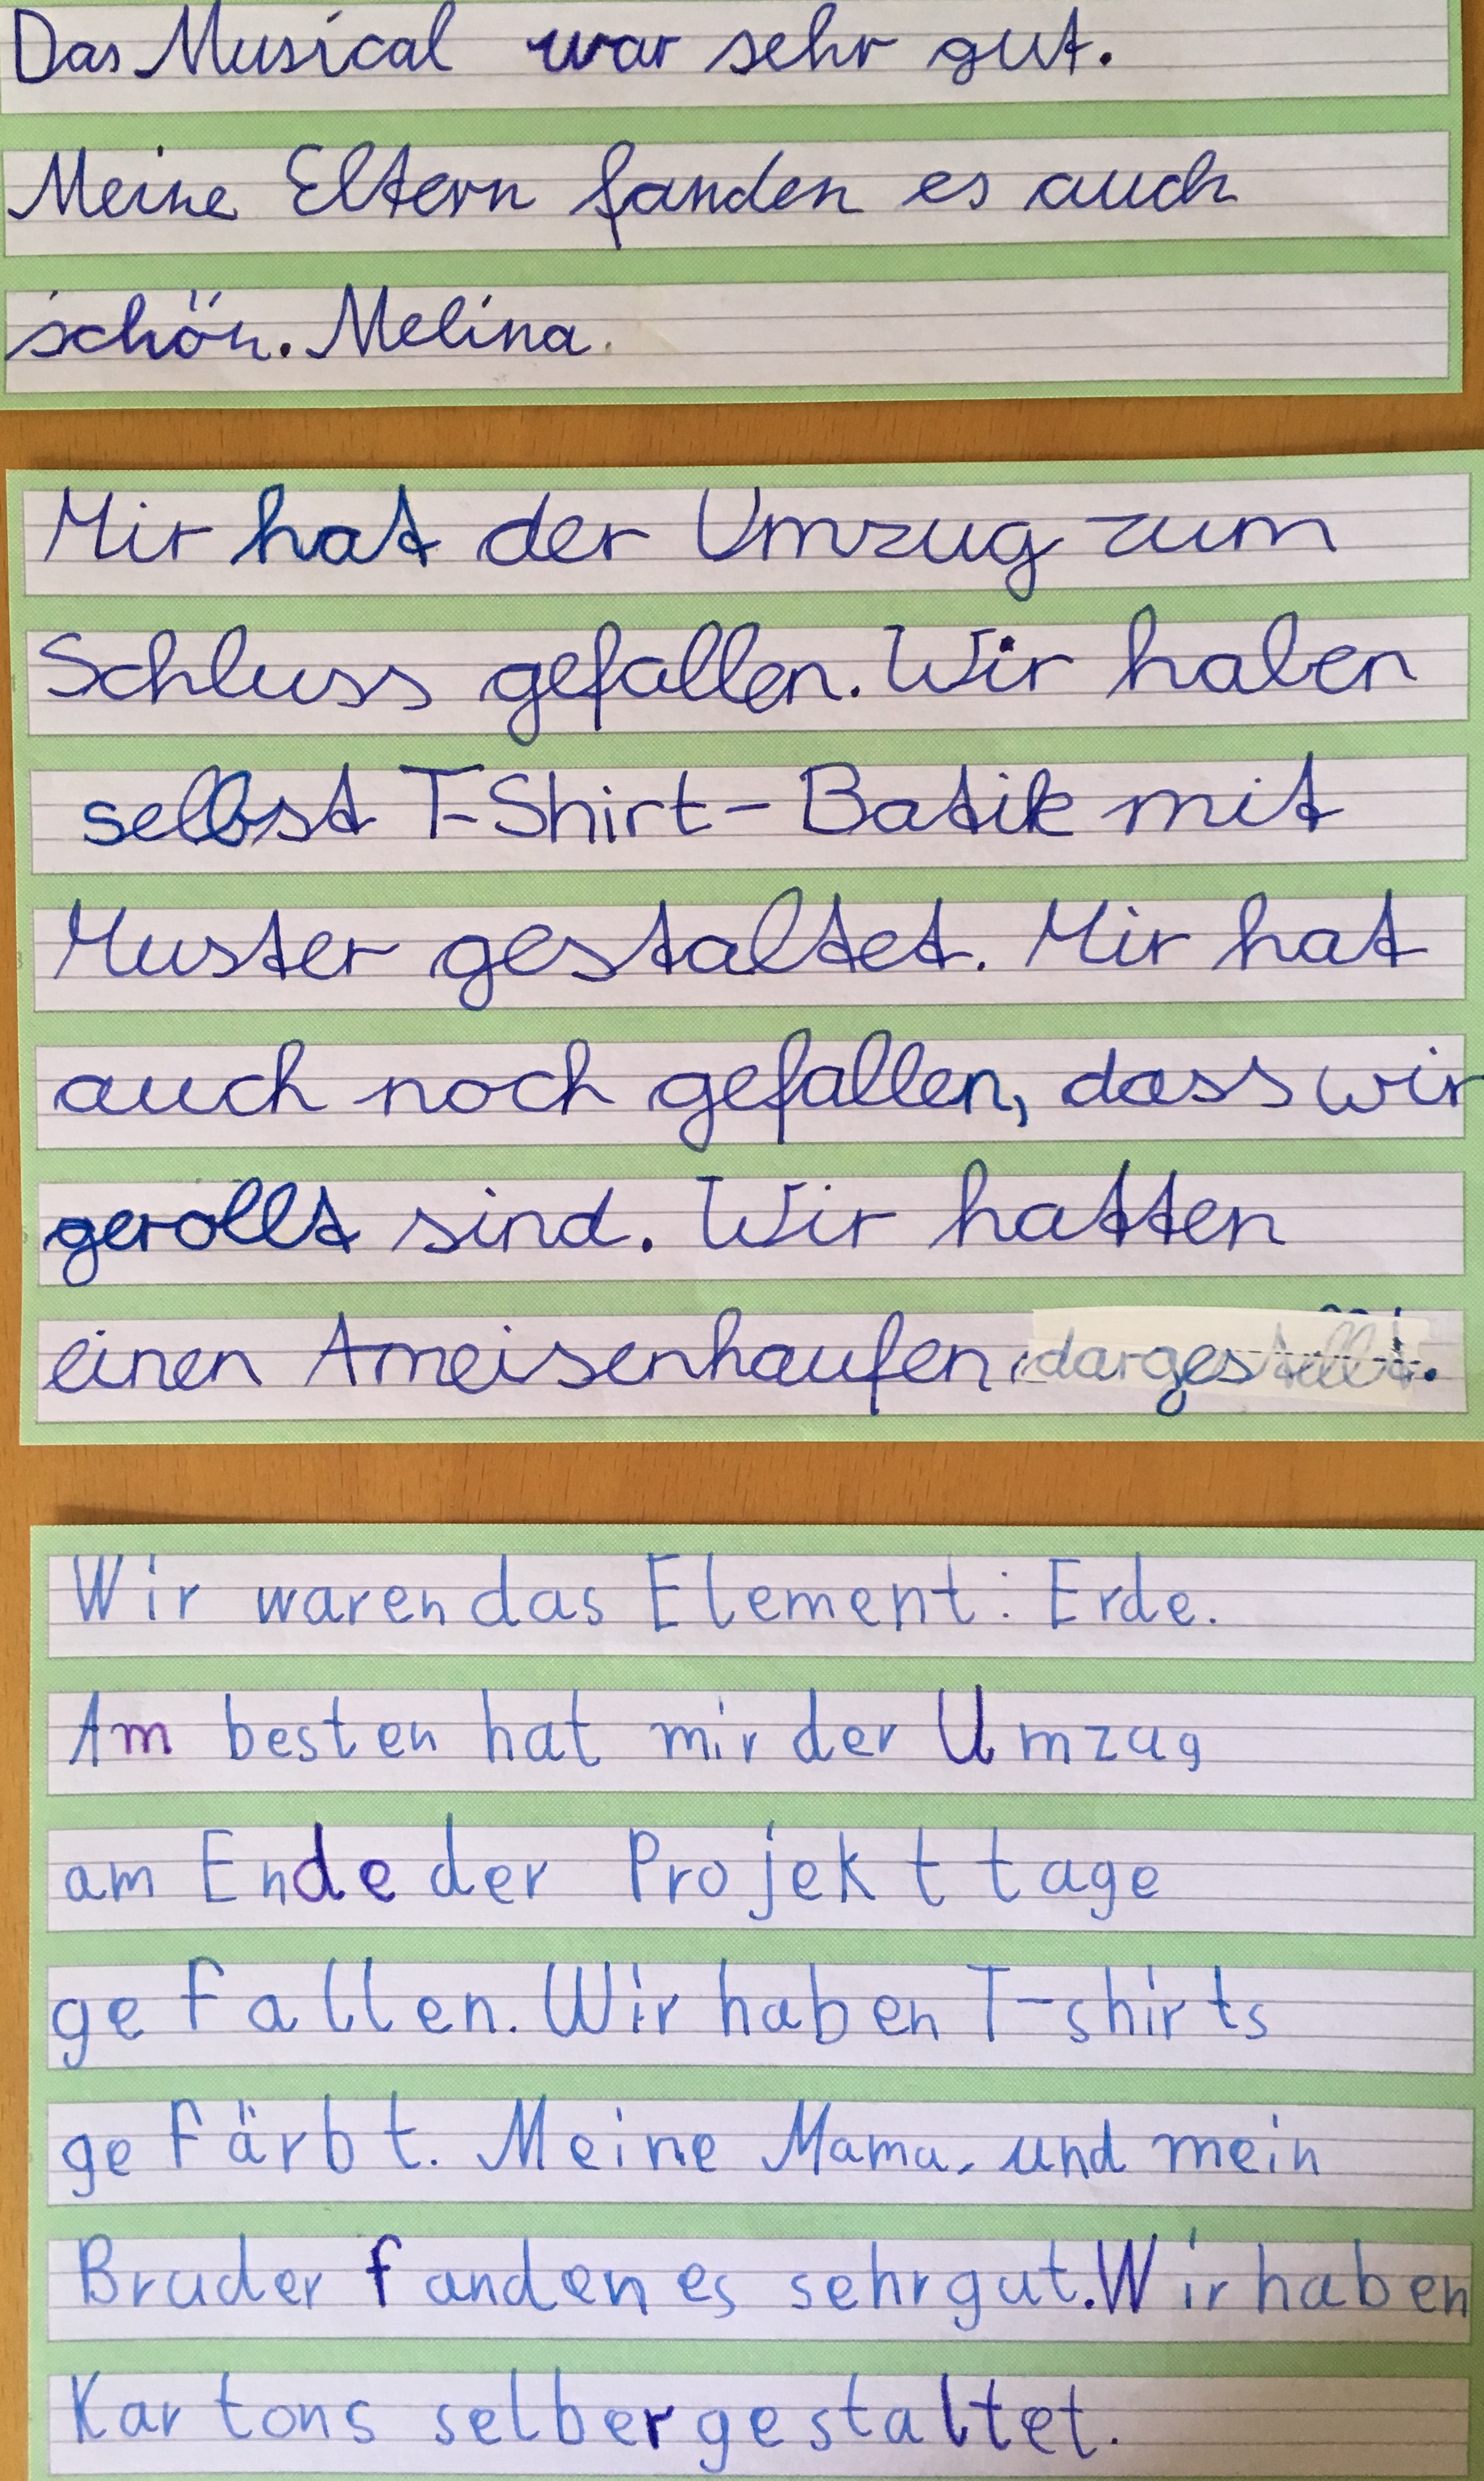 Das Musical war sehr gut.
Meine Eltern fanden es auch
schön. Melina.
Mir hat der Umzug zum
Schluss gefallen. Wir haben
selbst T-Shirt-Batik mit
Muster gestaltet. Mir hat
auch noch gefallen, dass wir
gerollt sind. Wir hatten
einen Ameisenhaufen dargestellt.
Wir waren das Element: Erde.
Am besten hat mir der Umzug
am Ende der Projekttage
gefallen. Wir haben T-shirts
gefärbt. Meine Mama und mein
Bruder fanden es sehr gut. Wir haben
Kartons selber gestaltet.